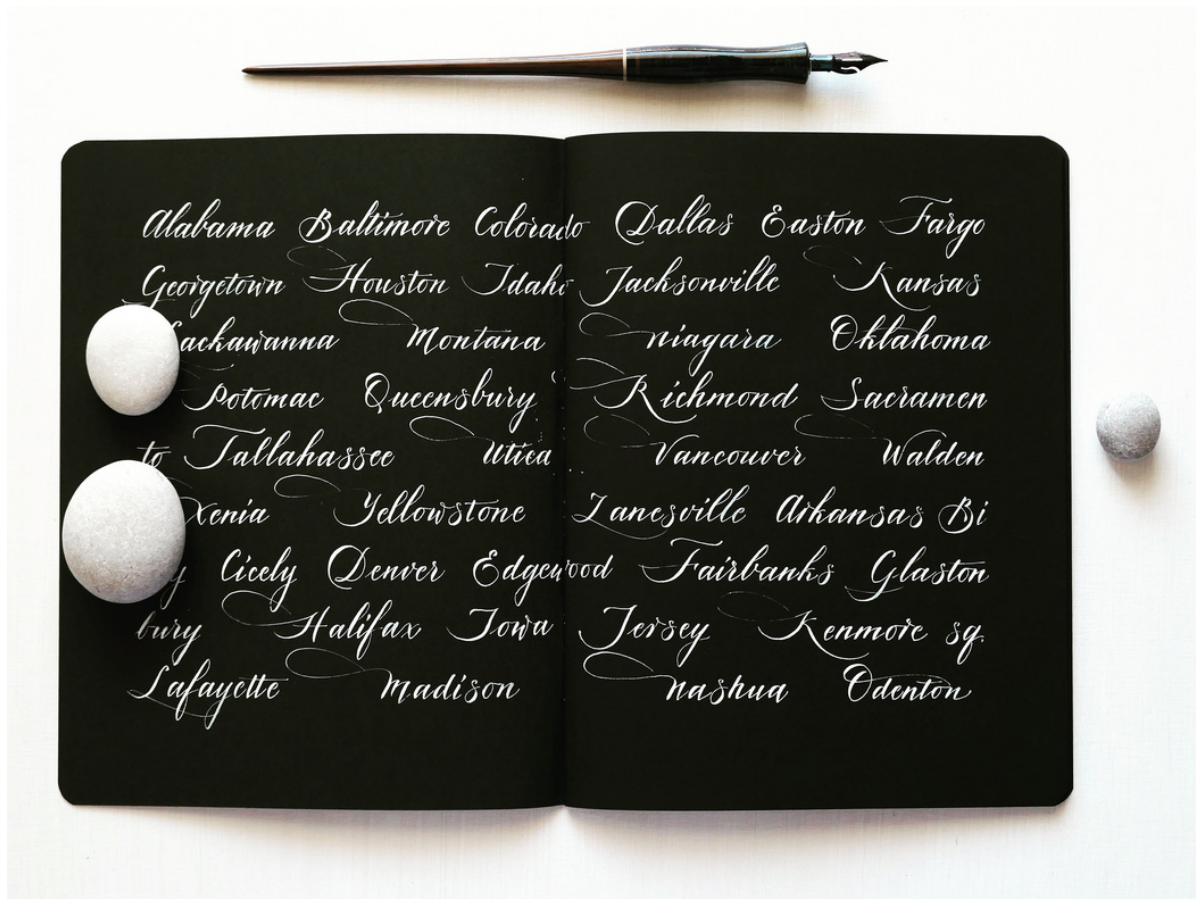 Alabama Baltimore Colorado Dallas Easton Fargo
Georgetown Houston Idaho Jacksonville Kansas
Lackawanna Montana niagara Oklahoma
Potomac Queensbury Richmond Sacramen
to Tallahassee Utica Vancouver Walden
Xenia Yellowstone Zanesville Arkansas Bi
Cicely Denver Edgewood Fairbanks Glaston
bury Halifax Iowa Jersey Kenmore sq.
Lafayette Madison nashua Odenton